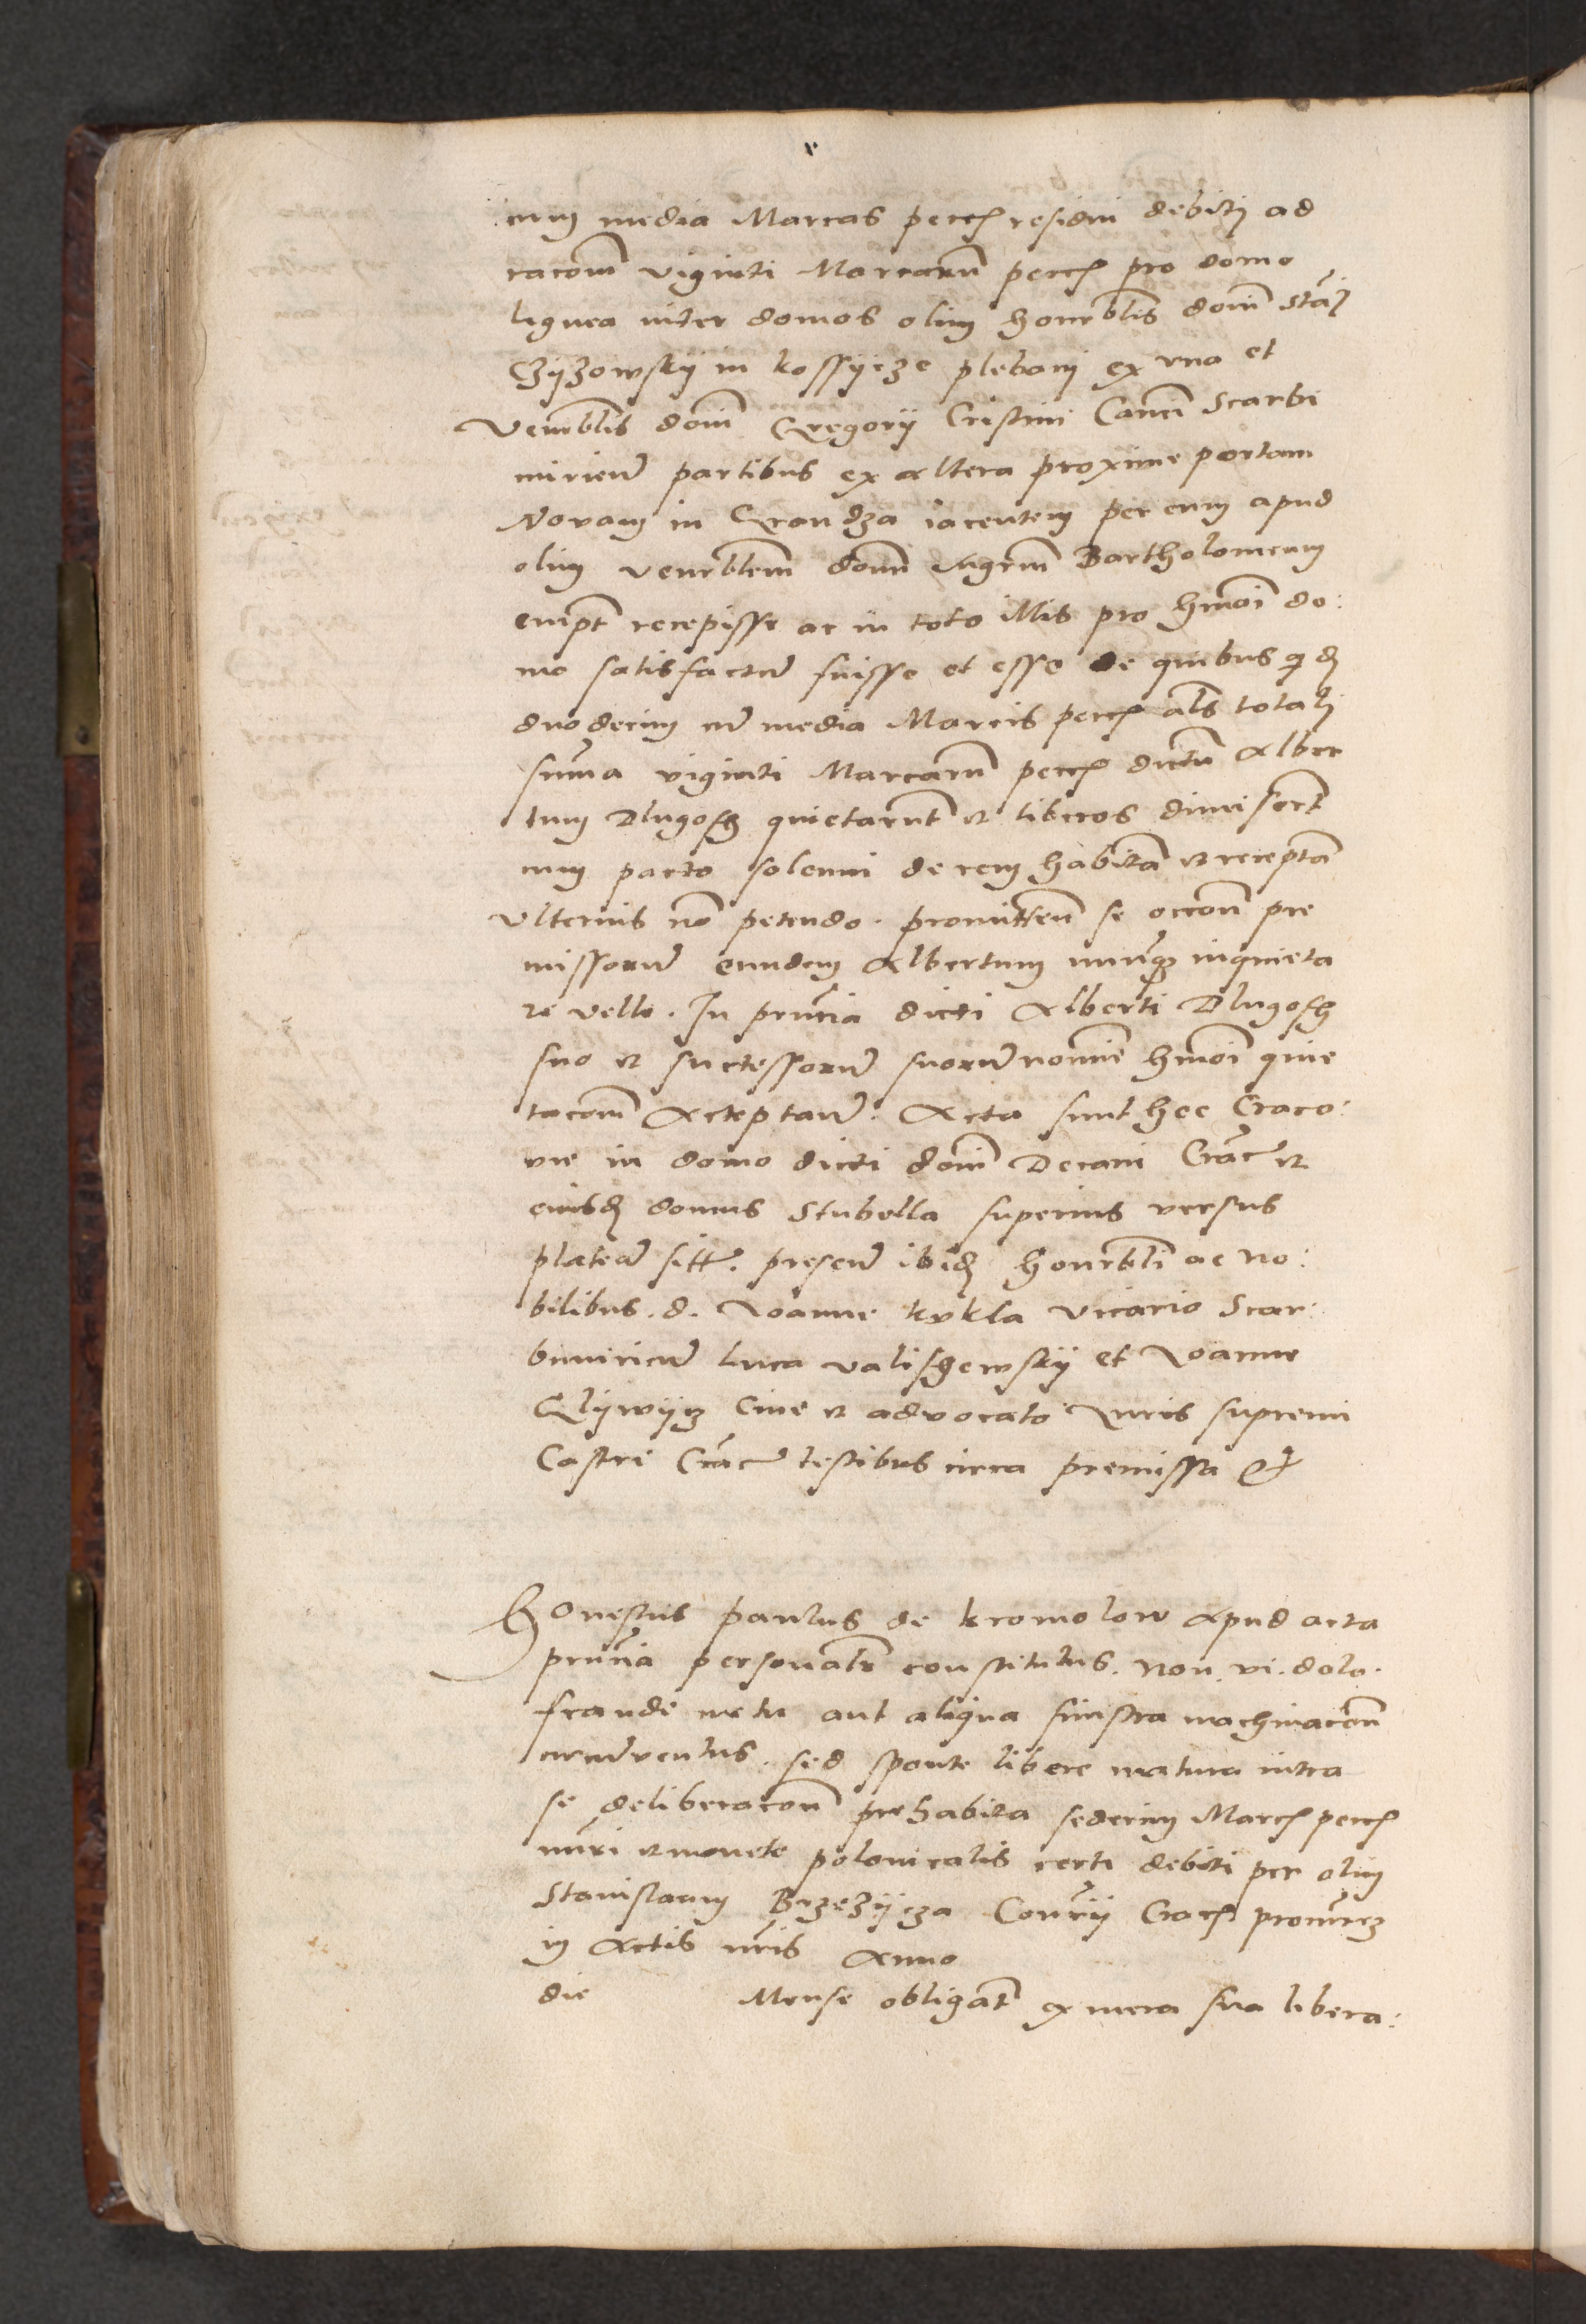 cum media Marcas pecc residui debiti ad
racom viginti Marcarum pecc pro domo
lignea inter domos olim honorblis domi Stai
Czyzowsky in kossycze plebani ex vna et
Venerblis domi Gregorii Cristini Canci Scarbi
mirien partibus ex altera proxime portam
Novam in Grondza iacentem per eum apud
olim venerblem domi Mgrum Bartholomeum
empt recepisse ac in toto illis pro hmoi do:
mo satisfactu fuisse et esse de quibus qd
duodecim cu media Marcis pecc als totali
suma viginti Marcarum pecc dictu Alber
tum Dlugosch quietarunt et liberos dimisert
cum pacto solenni de rem habita et recepta
vlterius no petendo. promitten se occon pre
missoru eundem Albertum nunq inquieta
re velle. In pruncia dicti Alberti Dlugosch
suo et successoru suoru nomine hmoi quie
tacom acceptan. Acta sunt hec Craco:
vie in domo dicti domi Decani Crac et
eiusd domus Stubella superius versus
platea sitt. presen ibid honorbli ac No:
bilibus. d. Ioanne kukla vicario Scar:
bimirien Luca valischewsky et Ioanne
Glywycz Cive et advocato Iuris supremi
Castri Crac testibus circa premissa et

Honestus paulus de kromolow Apud acta
pruncia personalr constitutus. non. vi. dolo.
fraude metu aut aliqua sinistra machinacon
circuventus. sed sponte libere matura intra
se deliberacon prehabita sedecim Marc pecc
nuri et monete polonicalis certi debiti per olim
Stanislaum Brzezycza Conrii Crac
in Actis nris Anno
die Mense obligat ex mera sua libera: